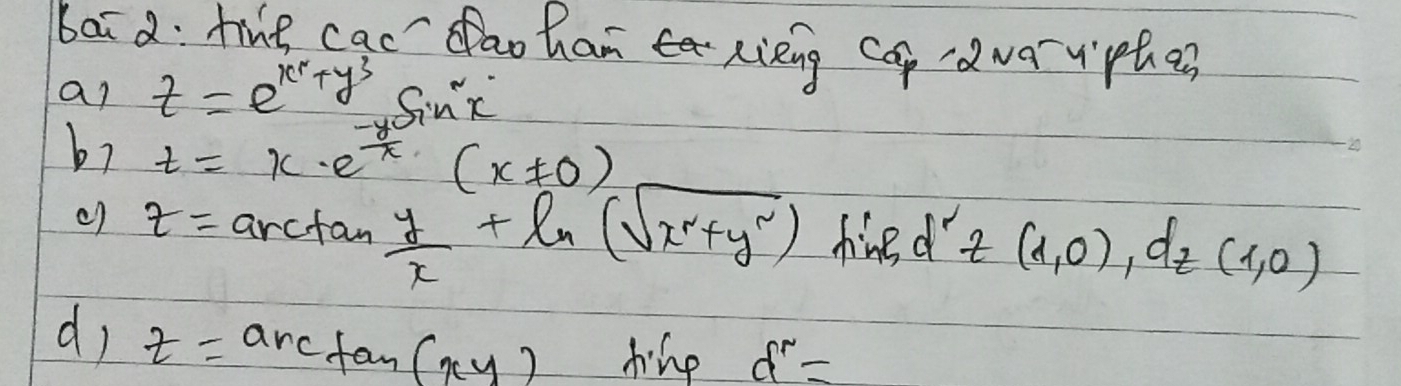 bài 2: tính các đạo hàm riêng cấp 2 và vi phân
a) z = e^{x²+y³} sin²x
b) z = x·e^{-y/x} (x≠0)
c) z = arctan y/x + ln (√x²+y²) tính d²z (1,0), dz (1,0)
d) z = arctan(xy) tính d² =